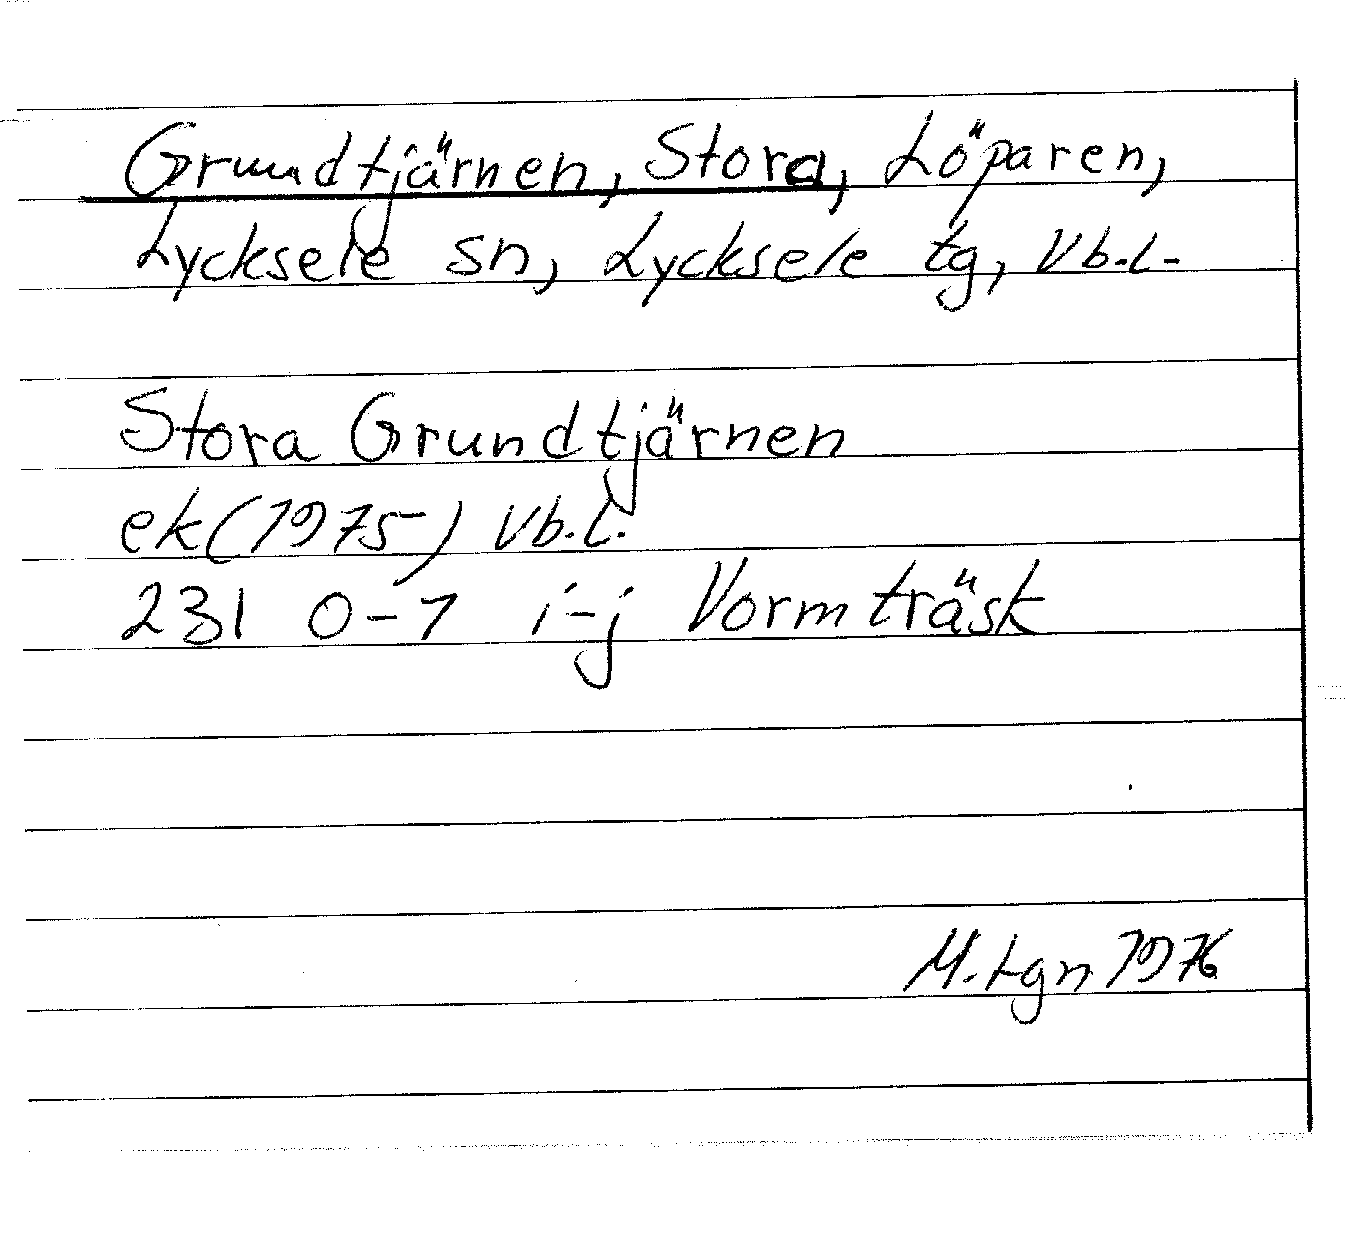 Grundtjärnen, Stora, Löparen,
Lycksele sn, Lycksele tg, Vb.l.
Stora Grundtjärnen
ek(1975) Vb.l.
231 0-1 i-j Vormträsk
M.Lgn 1976